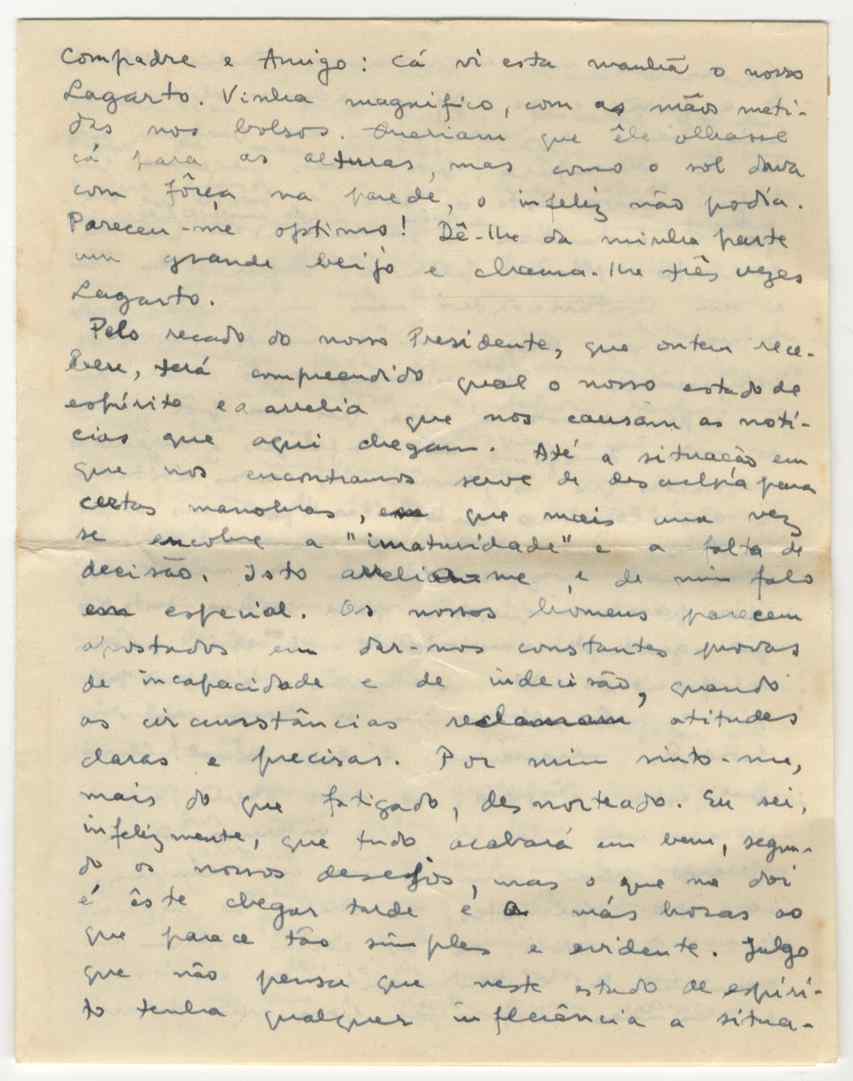 Compadre e Amigo: Cá vi esta manhã o nosso
Lagarto. Vinha magnifico, com as mãos meti-
das nos bolsos. Queriam que êle olhasse
cá para as alturas, mas como o sol dava
com fôrça na parede, o infeliz não podia.
Pareceu-me optimo! Dê-lhe da minha parte
um grande beijo e chama-lhe três vezes
Lagarto.
Pelo recado do nosso Presidente, que ontem rece-
beu, terá compreendido qual o nosso estado de
espírito e a arrelia que nos causam as notí-
cias que aqui chegam. Até a situação em
que nos encontramos serve de desculpa para
certas manobras, em que mais uma vez
se encobre a "imaturidade" e a falta de
decisão. Isto arrelia-me, e de mim falo
em especial. Os nossos homens parecem
apostados em dar-nos constantes provas
de incapacidade e de indecisão, quando
as circunstâncias reclamam atitudes
claras e precisas. Por mim sinto-me,
mais do que fatigado, desnorteado. Eu sei,
infelizmente, que tudo acabará em bem, segun-
do os nossos desejos, mas o que me doi
é êste chegar tarde e a más horas ao
que parece tão simples e evidente. Julgo
que não pensa que neste estado de espíri-
to tenha qualquer influência a situa-